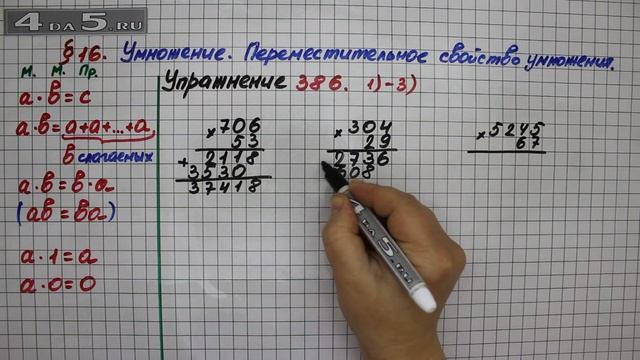 4DA5.RU
§16. Умножение. Переместительное свойство умножения.
М. М. Пр.
a·b=c
a·b=a+a+...+a
b слагаемых
a·b=b·a
(ab=ba)
a·1=a
a·0=0
Упражнение 386. 1)-3)
×706
53
+2118
3530
37418
×304
29
2736
608
×5245
67